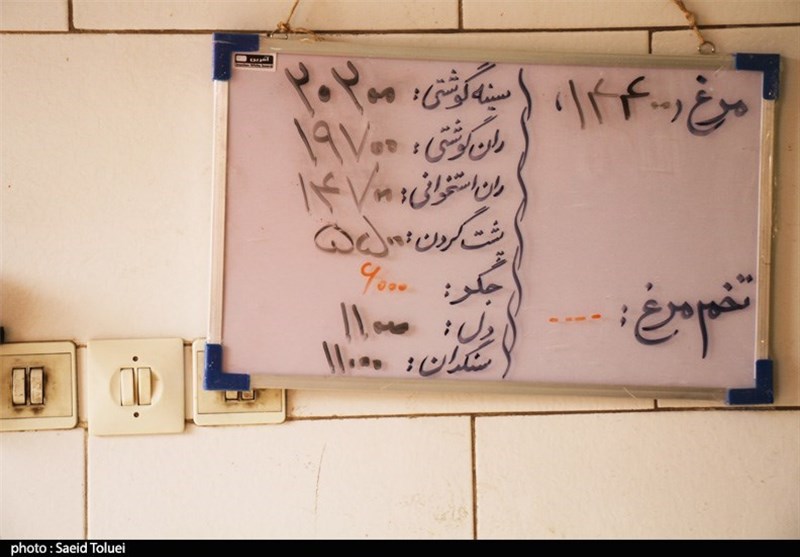 مرغ ۱۳۴۰۰
تخم مرغ : ----
سینه گوشتی : ۲۰۲۰۰
ران گوشتی : ۱۹۷۰۰
ران استخوانی : ۱۴۷۰۰
پشت گردن : ۵۵۰۰
جگر : ۶۰۰۰
دل : ۱۱۰۰۰
سنگدان : ۱۱۰۰۰
photo : Saeid Toluei